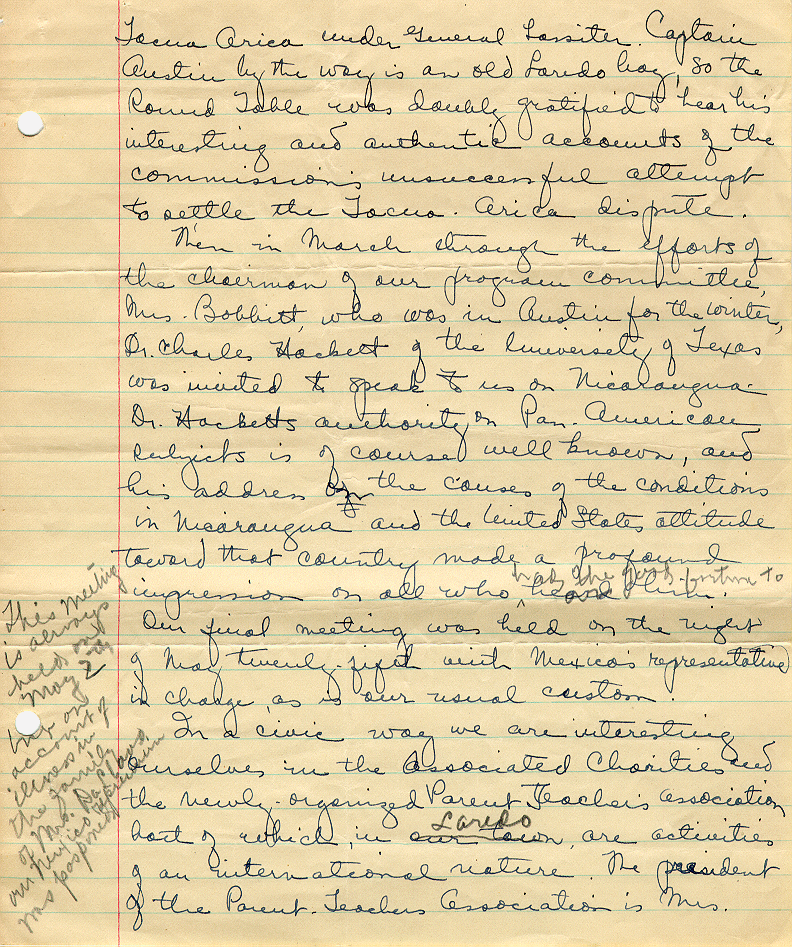 Tacna Arica under General Lassiter. Captain
Austin by the way is an old Laredo boy, so the
Round Table was doubly gratified to hear his
interesting and authentic accounts of the
commission's unsuccessful attempt
to settle the Tacna-Arica dispute.
Then in March through the efforts of
the chairman of our program committee,
Mrs. Bobbitt, who was in Austin for the winter,
Dr. Charles Hackett of the University of Texas
was invited to speak to us on Nicarangua.
Dr. Hacketts authority on Pan-American
subjects is of course well known, and
his address on the causes of the conditions
in Nicarangua and the United States attitude
toward that country made a profound
had the good fortune to
impression on all who heard him.
Our final meeting was held on the night
of May twenty-fifth with Mexico's representative
in charge, as is our usual custom.
In a civic way we are interesting
ourselves in the Associated Charities and
the newly-organized Parent Teachers association
Laredo
both of which, in our town, are activities
of an international nature. The president
of the Parent-Teachers Association is Mrs.
This meeting
is always
held on
May 2nd
but on
account of
illness in
the family
of Mrs.
our Mexico chairman
was postponed